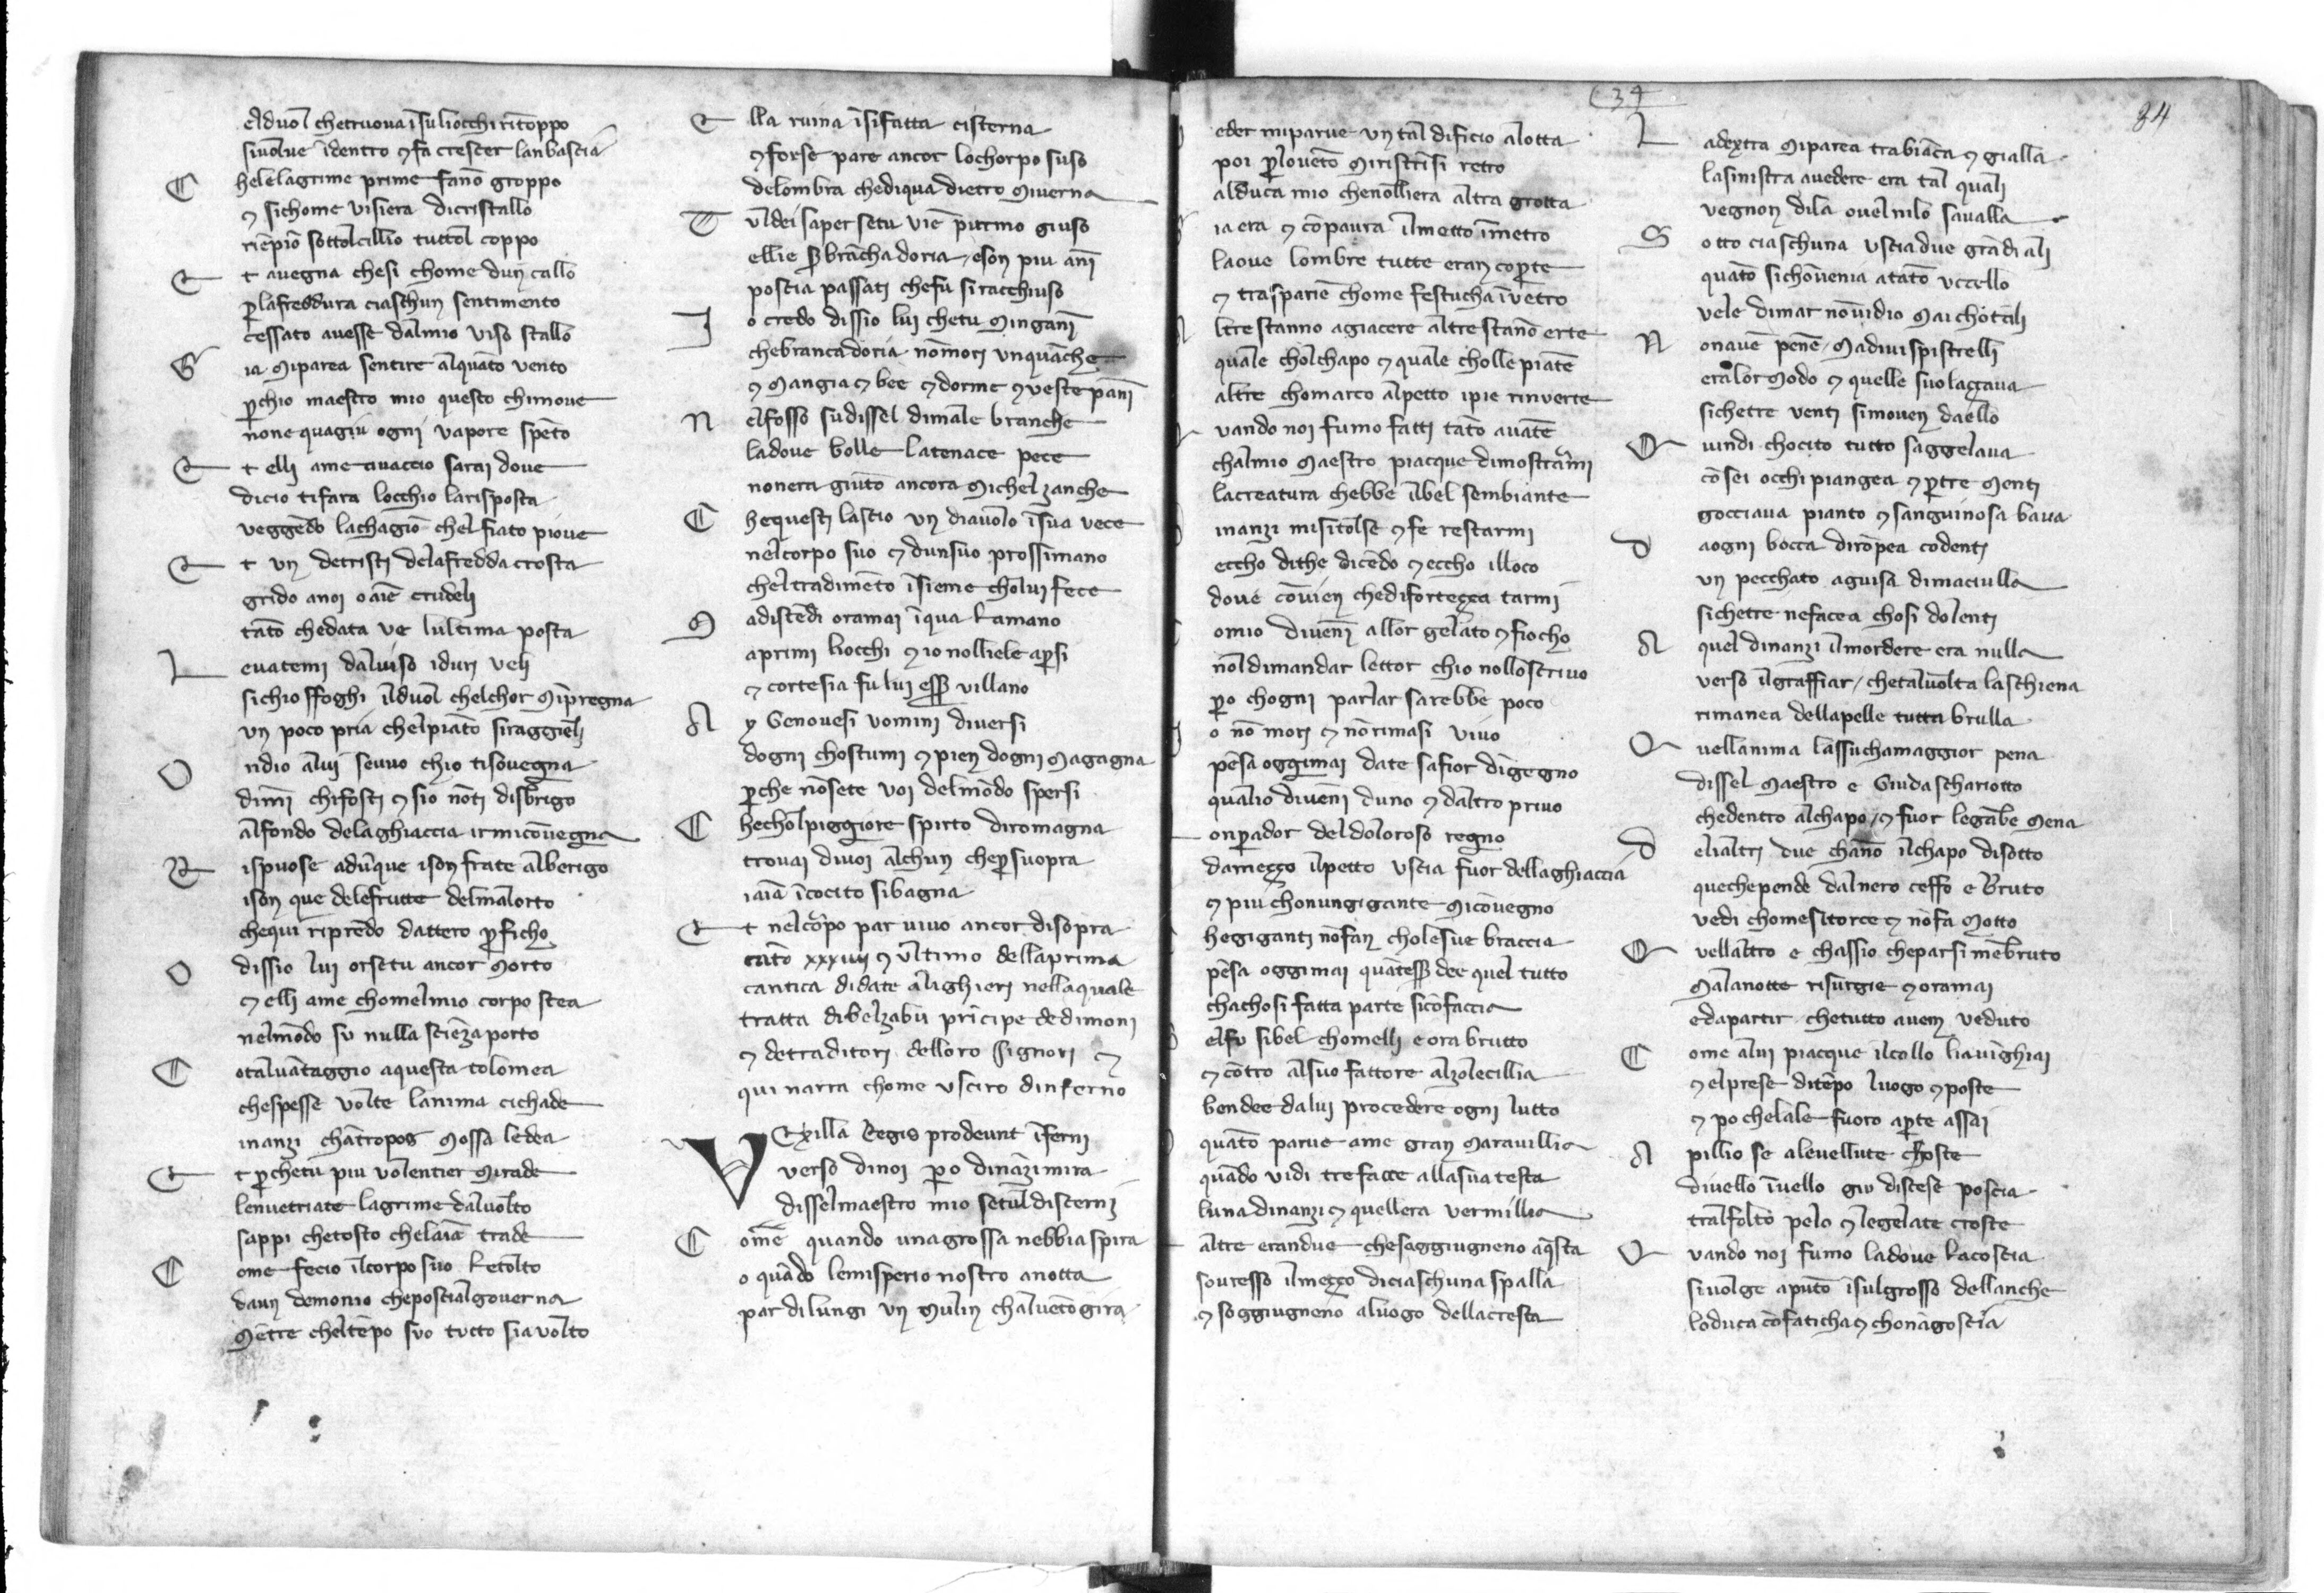 elduol chetruoua ĩsuliocchi rĩtoppo
siuolue ĩdentro ⁊ fa crescer lanbascia
C helelagrime prime fanõ groppo
⁊ sichome visiera dicristallo
riẽpiõ sottolcillio tuttol coppo
E t auegna chesi chome dun callo
ꝑlafreddura ciaschun sentimento
cessato auesse dalmio viso stallo
G ia miparea sentire alquãto vento
ꝑchio maestro mio questo chimoue
none quagiu ogni vapore spẽto
E t elli ame auaccio sarai doue
dicio tifara locchio larisposta
veggẽdo lachagiõ chel fiato pioue
E t un detristi delafredda crosta
grido anoi o aĩe crudeli
tãto chedata ve lultima posta
L euatemi dalviso iduri veli
sichio sfoghi ilduol chelchor mĩpregna
un poco pria chelpiãto siraggieli
O ndio alui seuuo chio tisouegna
dimi chifosti ⁊ sio nõti disbrigo
alfondo delaghiaccia ir micõuegna
R ispuose adũque ison frate alberigo
ison que delefrutte delmalorto
chequi riprẽdo dattero ꝑ ficho
O dissio lui orsetu ancor morto
⁊ elli ame chomelmio corpo stea
nelmõdo su nulla sciẽza porto
C otalvãtaggio aquesta tolomea
chespesse volte lanima cichade
inanzi chãtropos mossa ledea
E t ꝑchetu piu volentier mirade
lenuetriate lagrime dalvolto
sappi chetosto chelaĩa trade
C ome fecio ilcorpo suo letolto
daun demonio cheposcialgouerna
mẽtre cheltẽpo suo tutto sia volto
E lla ruina ĩsifatta cisterna
⁊ forse pare ancor lochorpo suso
delombra chediqua dietro miuerna
T uldei saper setu vie piu mo giuso
ellie ẞ brãcha doria / eson piu ani
poscia passati chefu siracchiuso
I o credo dissio lui chetu mingani
chebranca doria nõmori unquãche
⁊ mangia ⁊ bee ⁊ dorme ⁊ veste pani
N elfosso su dissel dimale branche
ladoue bolle latenace pece
nonera giũto ancora michelzanche
C hequesti lascio un diauolo ĩsua vece
nelcorpo suo ⁊ dunsuo prossimano
cheltradimẽto ĩsieme cholui fece
M adistẽdi oramai ĩqua lamano
aprimi liocchi ⁊ io nolliele aꝑsi
⁊ cortesia fu lui eẞ villano
A y Genouesi vomini diuersi
dogni chostumi ⁊ pien dogni magagna
ꝑche nõsete voi delmõdo spersi
C hecholpiggiore spirto diromagna
trouai diuoi alchun cheꝑ suopra
iaia ĩcocito sibagna
E t nelcorpo par uiuo ancor disopra
cãto xxxiiij ⁊ ultimo dellaprima
cantica didate alighieri nellaquale
tratta dibelzabu prĩcipe dedimoni
⁊ detraditori delloro signori ⁊
qui narra chome usciro dinferno
V Exilla Regis prodeunt ĩferni
verso dinoi ꝑo dinãzi mira
disselmaestro mio setul discerni
C ome quando una grossa nebbia spira
o quãdo lemisperio nostro anotta
par dilungi un mulin chalvẽto gira
34
eder miparue un tal dificio alotta
poi ꝑlouẽto miristrĩsi retro
alduca mio chenolliera altra grotta
ia era ⁊ cõpaura ilmetto ĩmetro
laoue lombre tutte eran coꝑte
⁊ trasparie chome festucha ĩvetro
ltre stanno agiacere altre stanõ erte
quale cholchapo ⁊ quale cholle piãte
altre chomarco alpetto ipie rinuerte
uando noi fumo fatti tãto auãte
chalmio maestro piacque dimostrarmi
lacreatura chebbe ilbel sembiante
inanzi misitolse ⁊ fe restarmi
eccho dithe dicẽdo ⁊ eccho illoco
doue cõuien chedifortezza tarmi
omio diueni allor gelato ⁊ fiocho
nõldimandar lettor chio nolloscriuo
ꝑo chogni parlar sarebbe poco
o nõ mori ⁊ nõrimasi viuo
pẽsa oggimai date safior dĩgegno
qualio diueni duno ⁊ daltro priuo
onꝑador deldoloroso regno
damezzo ilpetto uscia fuor dellaghiaccia
⁊ piu chonungigante micõuegno
hegiganti nõfan cholesue braccia
pẽsa oggimai quãteẞ dee quel tutto
chachosi fatta parte sicõfaccia
elfu sibel chomelli e ora brutto
⁊ cõtro alsuo fattore alzolecillia
ben dee dalui procedere ogni lutto
quãto parue ame gran marauillia
quãdo vidi tre facce allasua testa
luna dinanzi ⁊ quellera vermillia
altre erandue chesaggiugneno aqsta
souresso ilmezzo diciaschuna spalla
⁊ soggiugneno aluogo dellacresta
84
L adextra miparea trabiãca ⁊ gialla
lasinistra auedere era tal quali
vegnon dila ouelnilo saualla
S otto ciaschuna uscia due grãdi ali
quãto sichõuenia atãto uccello
vele dimar nõuidio mai chotali
N onauẽ pẽne / madiuispistrelli
eralor modo ⁊ quelle suolazaua
sichetre venti simouen daello
Q uindi chocito tutto saggelaua
cõsei occhi piangea ⁊ ꝑtre menti
gocciaua pianto ⁊ sanguinosa baua
D aogni bocca dirõpea codenti
un pecchato aguisa dimaciulla
sichetre nefacea chosi dolenti
A quel dinanzi ilmordere era nulla
verso ilgraffiar / chetaluolta laschiena
rimanea dellapelle tutta brulla
Q uellanima lassuchamaggior pena
dissel maestro e Giuda schariotto
chedentro alchapo / ⁊ fuor legãbe mena
D elialtri due chãno ilchapo disotto
quechepende dalnero ceffo e Bruto
vedi chomesitorce ⁊ nõfa motto
Q uellaltro e chassio cheparsi mẽbruto
malanotte risurgie ⁊ oramai
edapartir chetutto auem veduto
C ome alui piacque ilcollo liauĩghiai
⁊ elprese ditẽpo luogo ⁊ poste
⁊ po chelale fuoro aꝑte assai
A pillio se alevellute choste
diuello ĩuello giu discese poscia
tralfolto pelo ⁊ legelate croste
Q uando noi fumo ladoue lacoscia
siuolge apũto ĩsulgrosso dellanche
loduca cõfaticha ⁊ chonãgoscia